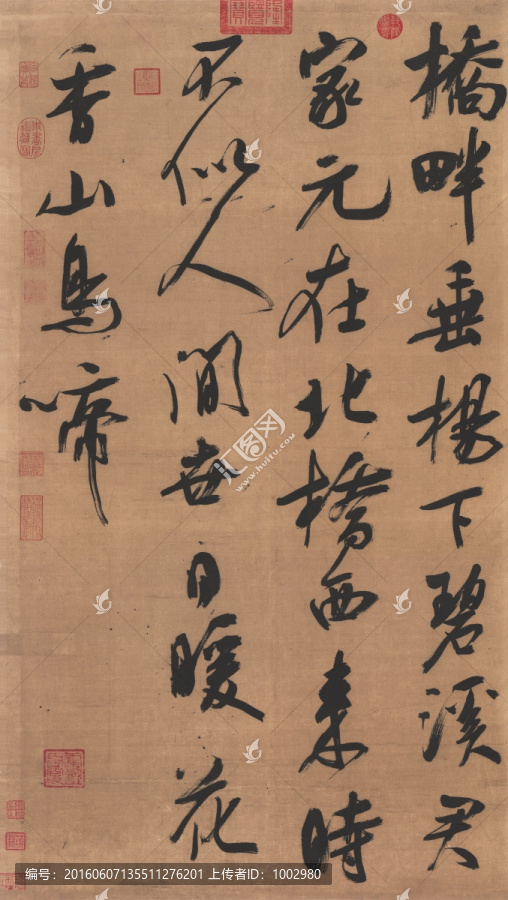 橋畔垂楊下碧溪君
家元在北橋西来時
不似人間世日暖花
香山鳥啼
汇图网
www.huitu.com
编号：20160607135511276201 上传者ID：1002980